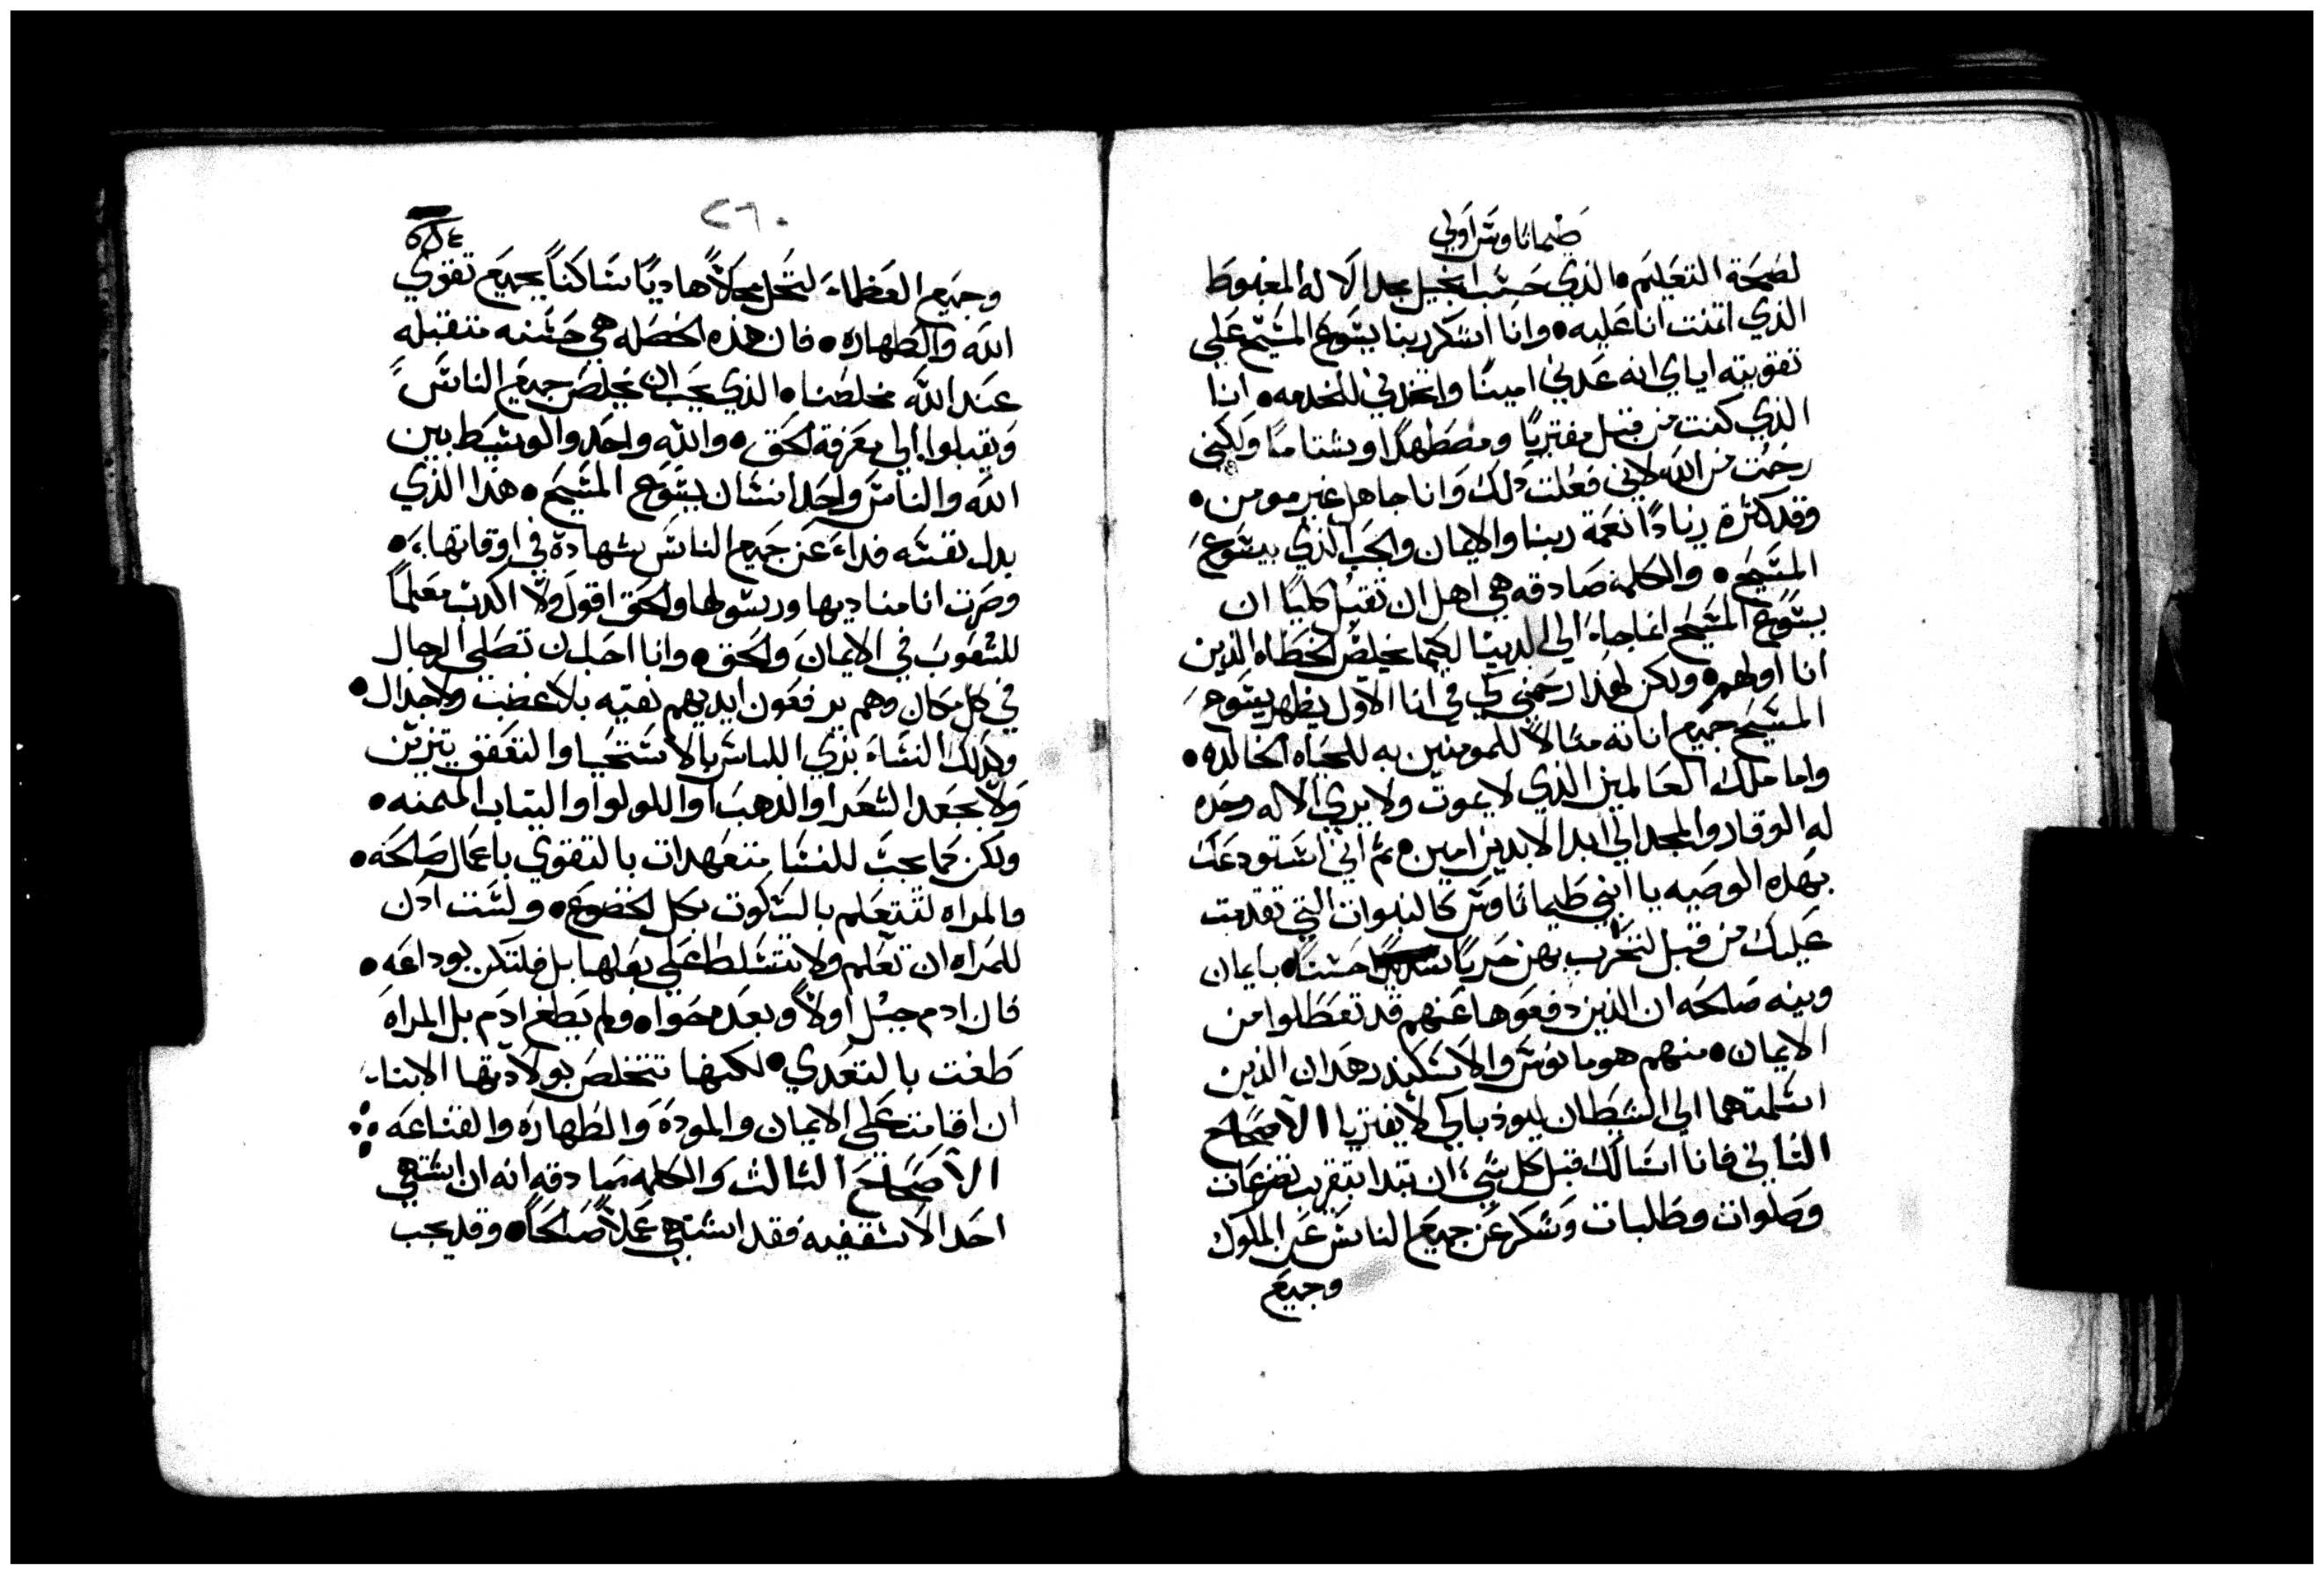 طيماثاوس اولي
لصحة التعليم الذي حسب انجيل مجد الاله المغبوط
الذي اتمنت انا عليه وانا اشكر ربنا يسوع المسيح علي
تقويته اياي انه عدني امينا واتخدني للخدمه انا
الذي كنت من قبل مفتريا ومضطهدا وشتاما ولكني
رحمت من الله لاني فعلت دلك وانا جاهل غير مومن
وقد كترة زيادا نعمة ربنا والايمان والحب الذي بيسوع
المسيح والكلمة صادقه هي اهل ان تقبل كليا ان
يسوع المسيح انما جاء الي الدنيا لكيما يخلص الخطاه الذين
انا اولهم ولكن لهذا رحمني كي في انا الاول يظهر يسوع
المسيح جميع اناته مثالا للمومنين به للحياه الخالده
واما ملك العالمين الذي لا يموت ولا يري الاله وحده
له الوقار والمجد الي ابد الابدين امين ثم اني استودعك
بهده الوصيه يا ابني طيماثاوس كالنبوات التي تقدمت
عليك من قبل لتحرب بهن حربا حسنا بايمان
ونيه صالحه ان الذين دفعوها عنهم قد تعطلوا من
الايمان منهم هومانوس والاسكندر هدان الذين
اسلمتهما الي الشيطان ليودبا كي لا يفتريا الاصحاح
الثاني فانا اسالك قبل كل شي ان تبدا بتقريب تضرعات
وصلوات وطلبات وشكر عن جميع الناس عن الملوك
وجميع
٢٦٠
وجميع العظماء لنحل محلا هاديا ساكنا بجميع تقوي
الله والطهاره فان هذه الخصله هي حسنه متقبله
عند الله مخلصنا الذي يحب ان يخلص جميع الناس
ويقبلوا الي معرفة الحق والله واحد والوسط بين
الله والناس واحد انسان يسوع المسيح هذا الذي
بدل نفسه فداء عن جميع الناس شهادة في اوقاتها
وصرت انا مناديها ورسولها والحق اقول ولا اكدب معلما
للشعوب في الايمان والحق وانا احب ان تصلي الرجال
في كل مكان وهم يرفعون ايديهم نقيه بلا غضب ولا جدال
وكدلك النساء بزي اللباس بالاستحيا والتعفف يتزين
ولا بجعد الشعر او الدهب او اللولو او الثياب المثمنه
ولكن كما يجب للنسا متعهدات بالتقوي باعمال صالحه
فالمراه لتتعلم بالسكوت بكل الخضوع ولست ادن
للمراه ان تعلم ولا تتسلط علي بعلها بل فلتكن بوداعه
فان ادم جبل اولا وبعده حوا ولم يطغ ادم بل المراه
طغت بالتعدي لكنها تتخلص بولادتها الابناء
ان اقامت علي الايمان والمودة والطهاره والقناعه
الاصحاح الثالث والكلمه صادقه انه ان اشتهي
احد الاسقفيه فقد اشتهي عملا صالحا وقد يجب